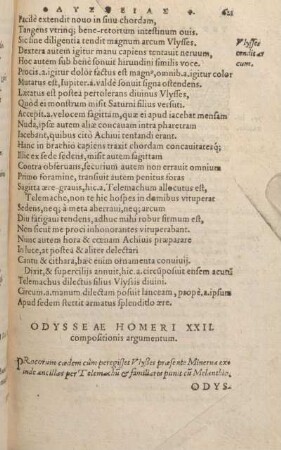 ΟΔΥΣΣΕΙΑΣ Φ. 421
Facilè extendit nouo in sinu chordam,
Tangens vtrinq; bene-retortum intestinum ouis.
Sic sine diligentia tendit magnum arcum Vlysses,
Dextera autem igitur manu capiens tentauit neruum,
Hoc autem sub benè sonuit hirundini similis voce.
Vlysses
tendit ar
cum.
Procis.a.igitur dolor factus est magnꝰ, omnib.a.igitur color
Mutatus est, Iupiter.a.valdè intonuit signa ostendens.
Lætatus est postea pertolerans diuinus Vlysses,
Quòd ei monstrum misit Saturni filius versuti.
Accepit.a.velocem sagittam, quæ ei apud iacebat mensam
Nuda, ipsæ autem aliæ concauam intra pharetram
Iacebant, quibus citò Achiui tentandi erant.
Hanc in brachio capiens traxit chordam concauitatesq;
Illic ex sede sedens, misit autem sagittam
Contra obseruans, securium autem non errauit omnium
Primo foramine, transiuit autem penitus foras
Sagitta ære-grauis, hic.a.Telemachum allocutus est,
Telemache, non te hic hospes in domibus vituperat
Sedens, neq; à meta aberraui, neq; arcum
Diu fatigaui tendens, adhuc mihi robur firmum est,
Non sicut me proci inhonorantes vituperabant.
Nunc autem hora & cœnam Achiuis præparare
In luce, at postea & aliter delectari
Cantu & cithara, hæc enim ornamenta conuiuij.
Dixit, & supercilijs annuit, hic.a.circũposuit ensem acutũ
Telemachus dilectus filius Vlyssis diuini.
Circum.a.manum dilectam posuit lanceam, propè.a.ipsum
Apud sedem stettit armatus splendidto ære.
ODYSSEAE HOMERI XXII.
compositionis argumentum.
PRocorum cædem cùm peregisset Vlysses præsente Minerua ex
inde ancillas per Telemachũ & familiares punit cũ Melanthio.
ODYS-